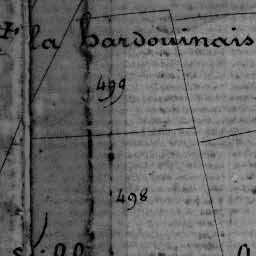 la hardouinais
499
498